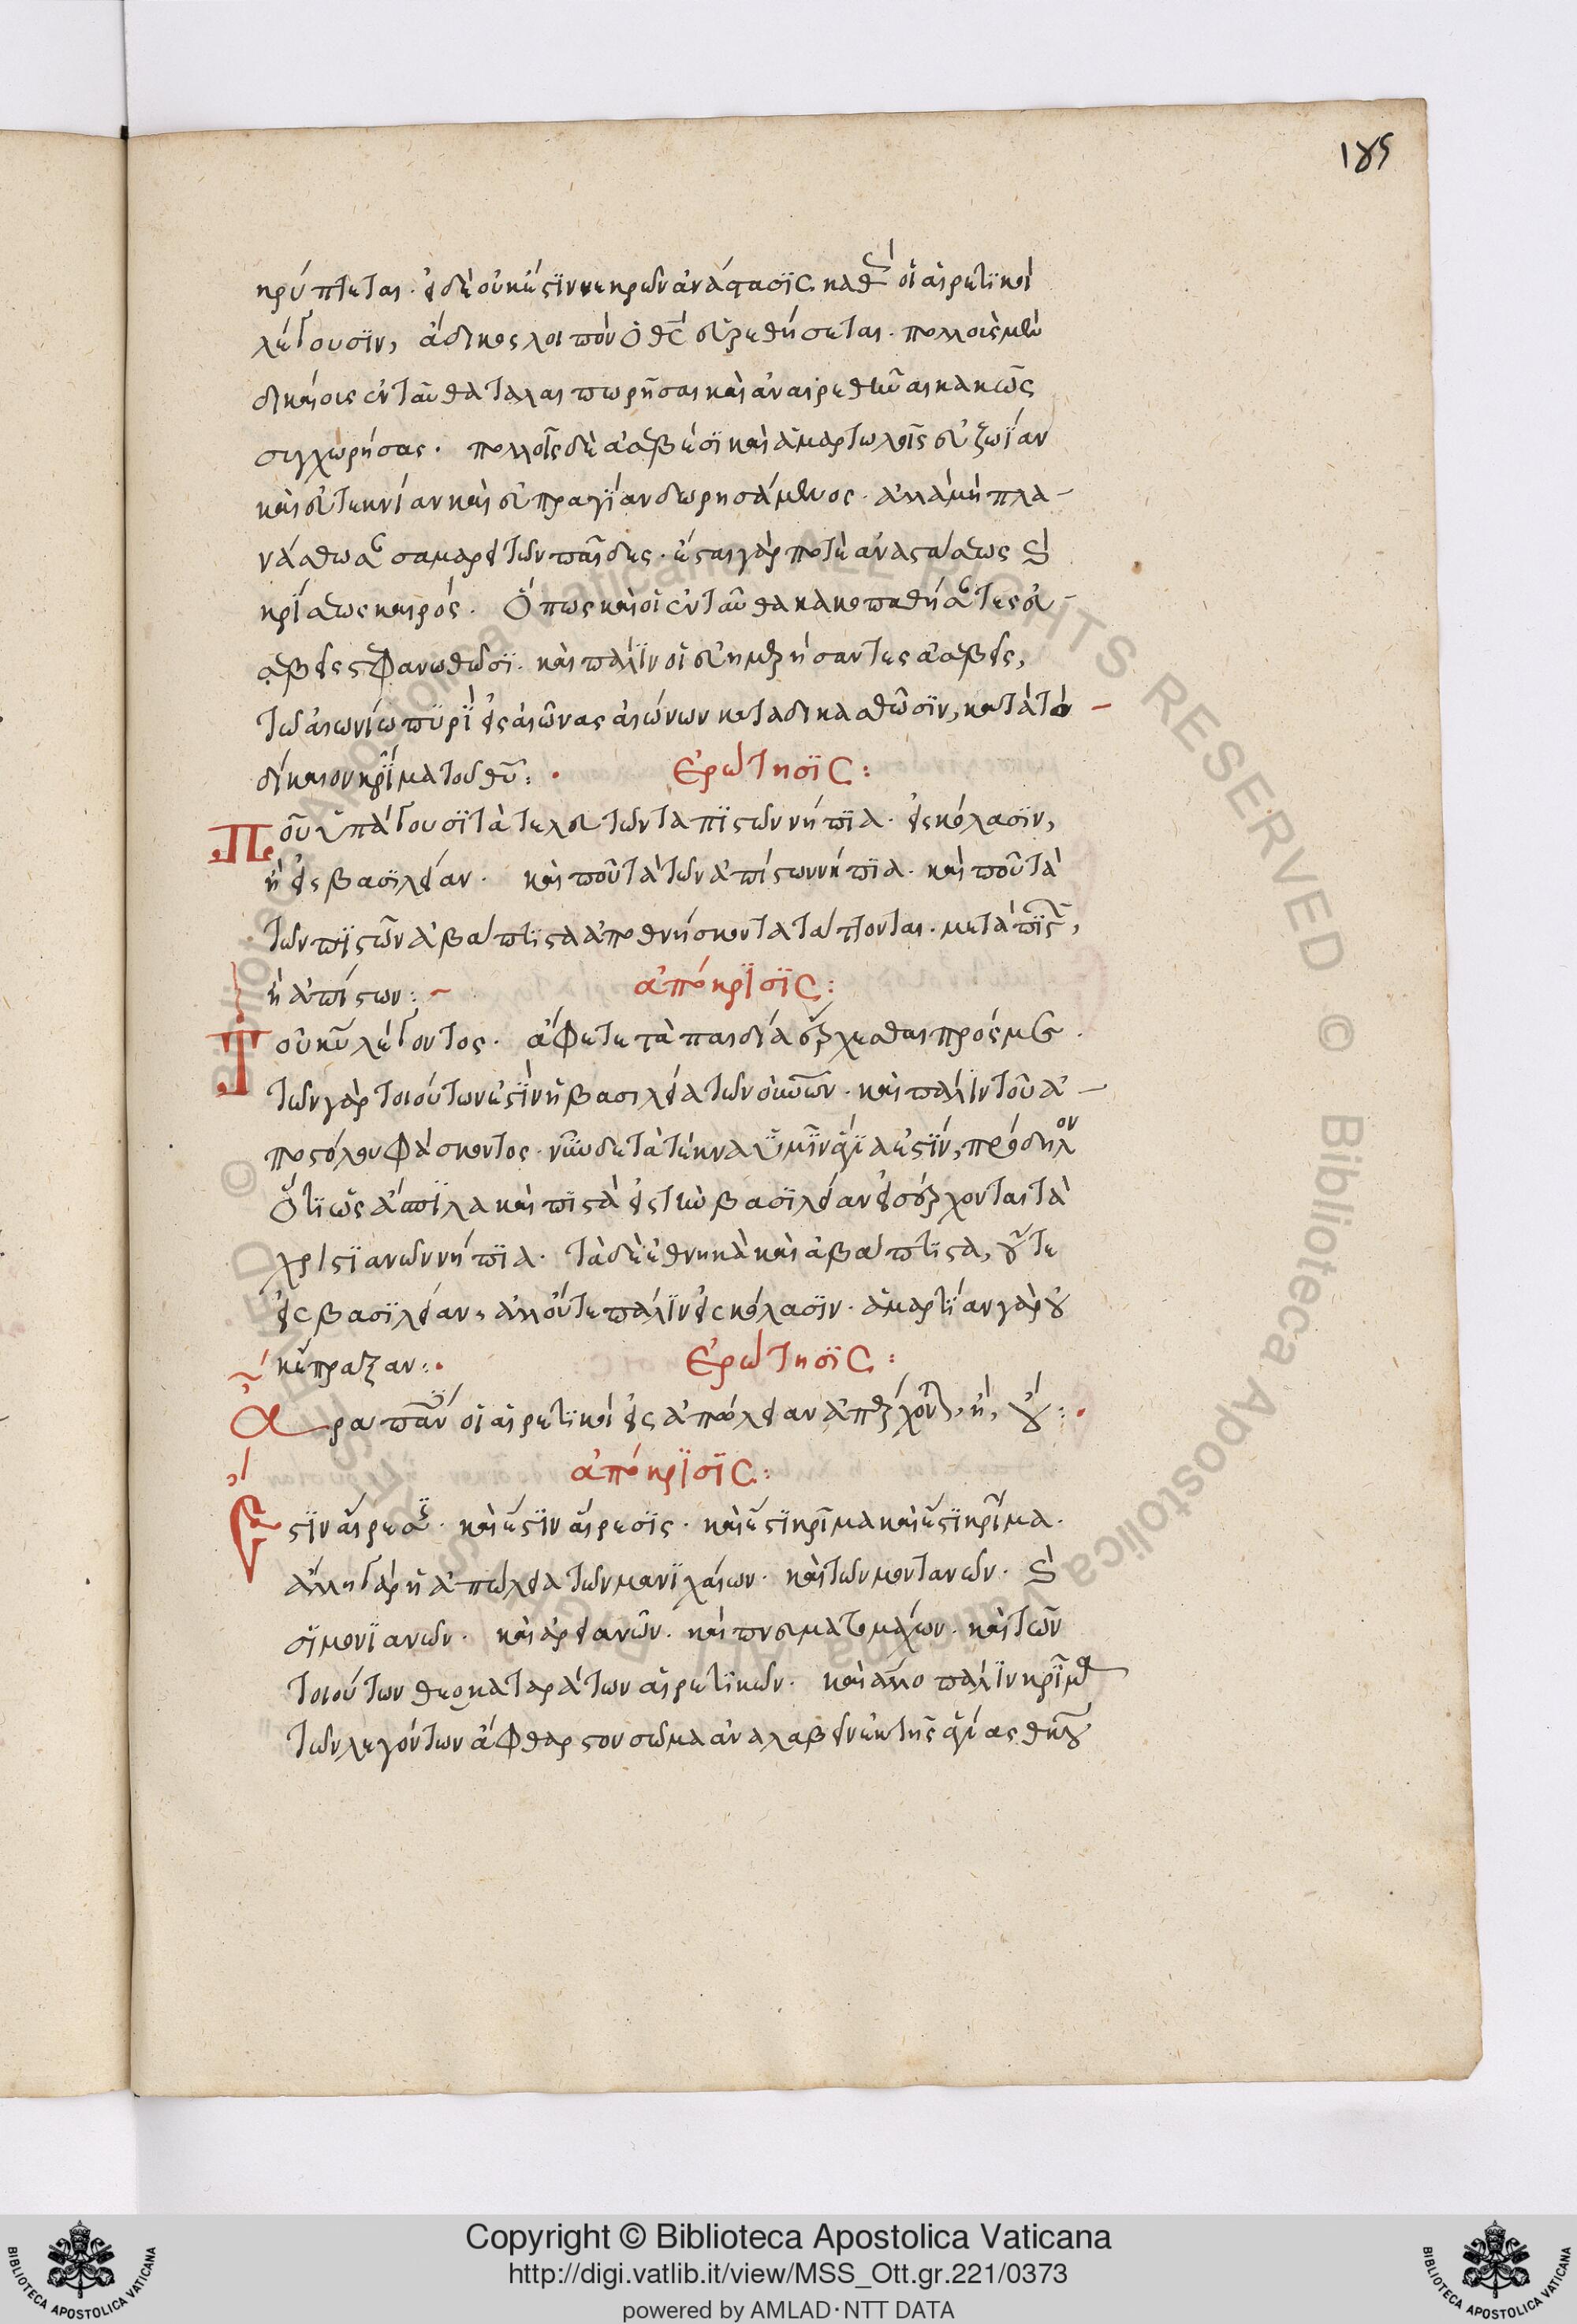 185
κρύπτεται. εἰ δὲ οὐκ ἔστιν νεκρῶν ἀνάστασις καθὼς οἱ αἱρετικοὶ
λέγουσιν, ἄδικος λοιπὸν ὁ θς εὑρεθήσεται. πολλοῖς μὲν
δικαίοις ἐνταῦθα ταλαιπωρῆσαι καὶ ἀναιρεθῆναι κακῶς
συγχωρήσας. πολλοῖς δὲ ἀσεβέσι καὶ ἁμαρτωλοῖς εὐζωΐαν
καὶ εὐτεκνίαν καὶ εὐπραγίαν δωρησάμενος. ἀλλὰ μὴ πλα-
νάσθωσαν σαμαρειτῶν παῖδες. ἔσται γάρ ποτε ἀναστάσεως καὶ
κρίσεως καιρός. ὅπως καὶ οἱ ἐνταῦθα κακοπαθήσαντες εὐ-
σεβεῖς στεφανωθῶσι. καὶ πάλιν οἱ εὐημερήσαντες ἀσεβεῖς,
τῶ αἰωνίω πυρὶ εἰς αἰῶνας αἰώνων καταδικασθῶσιν, κατὰ τὸ
δίκαιον κρῖμα τοῦ θυ:
Ἐρώτησις:
Ποῦ ὑπάγουσι τὰ τελευτῶντα πιστῶν νήπια. εἰς κόλασιν,
ἢ εἰς βασιλείαν. καὶ ποῦ τὰ τῶν ἀπίστων νήπια. καὶ ποῦ τὰ
τῶν πιστῶν ἀβάπτιστα ἀποθνήσκοντα τάττονται. μετὰ πιστῶν,
ἢ ἀπίστων:
ἀπόκρισις:
Τοῦ κυ λέγοντος. ἄφετε τὰ παιδία ἔρχεσθαι πρός με.
τῶν γὰρ τοιούτων ἐστὶν ἡ βασιλεία τῶν οὐνῶν. καὶ πάλιν τοῦ ἀ-
ποστόλου φάσκοντος. νῦν δὲ τὰ τέκνα ὑμῶν ἅγιά ἐστιν, πρόδηλον
ὅτι ὡς ἄσπιλα καὶ πιστὰ εἰς τὴν βασιλείαν εἰσέρχονται τὰ
χριστιανῶν νήπια. τὰ δὲ ἐθνικὰ καὶ ἀβάπτιστα, οὔτε
εἰς βασιλείαν, ἀλλ' οὔτε πάλιν εἰς κόλασιν. ἁμαρτίαν γὰρ οὐ
κ ἔπραξαν:
Ἐρώτησις:
Ἆρα πάντες οἱ αἱρετικοὶ εἰς ἀπώλειαν ἀπέρχονται, ἢ, οὔ:
ἀπόκρισις:
Ἔστιν αἵρεσις. καὶ ἔστιν αἵρεσις. καὶ ἔστι κρῖμα καὶ ἔστι κρῖμα.
ἄλλη γὰρ ἡ ἀπώλεια τῶν μανιχαίων. καὶ τῶν μοντανῶν. καὶ
σιμονιανῶν. καὶ ἀρειανῶν. καὶ πνευματομάχων. καὶ τῶν
τοιούτων θεοκαταράτων αἱρετικῶν. καὶ ἄλλο πάλιν κρῖμα
τῶν λεγόντων ἄφθαρτον σῶμα ἀναλαβεῖν ἐκ τῆς ἁγίας θκου
Copyright © Biblioteca Apostolica Vaticana
http://digi.vatlib.it/view/MSS_Ott.gr.221/0373
powered by AMLAD·NTT DATA